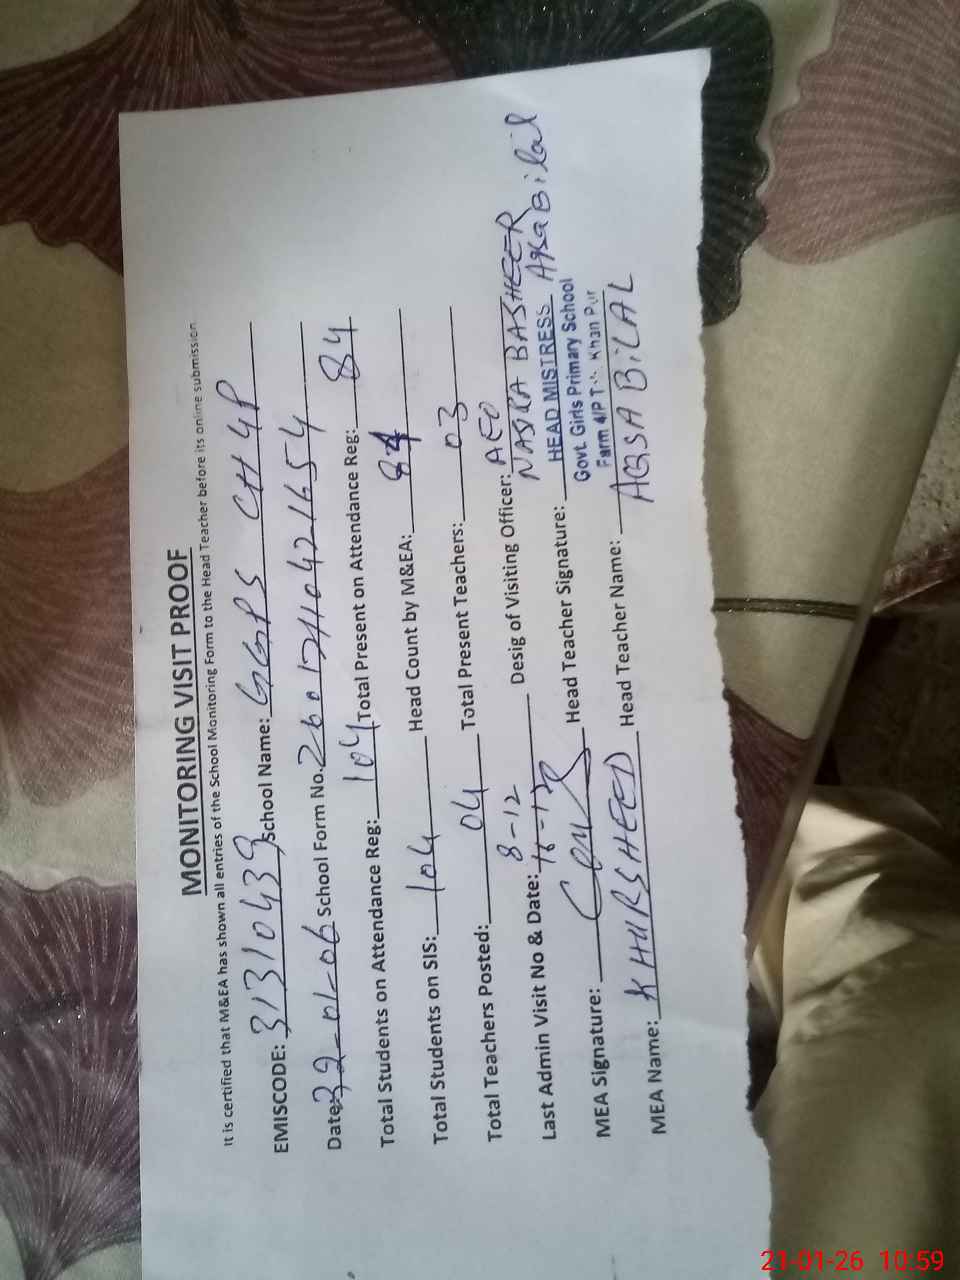 MONITORING VISIT PROOF
It is certified that M&EA has shown all entries of the School Monitoring Form to the Head Teacher before its online submission
EMISCODE: 31310439 School Name: GGPS CH 4P
Date: -01-06 School Form No. 
Total Students on Attendance Reg: 104 Total Present on Attendance Reg: 84
Total Students on SIS: 104 Head Count by M&EA: 84
Total Teachers Posted: 04 Total Present Teachers: 03
Last Admin Visit No & Date: 8-12 Desig of Visiting Officer: AEO
NASRA BASHEER
MEA Signature: Head Teacher Signature: HEAD MISTRESS Bilal
Govt. Girls Primary School
Farm 4/P Khan Pur
MEA Name: KHURSHEED Head Teacher Name: AQSA BiLAL
21-01-26 10:59